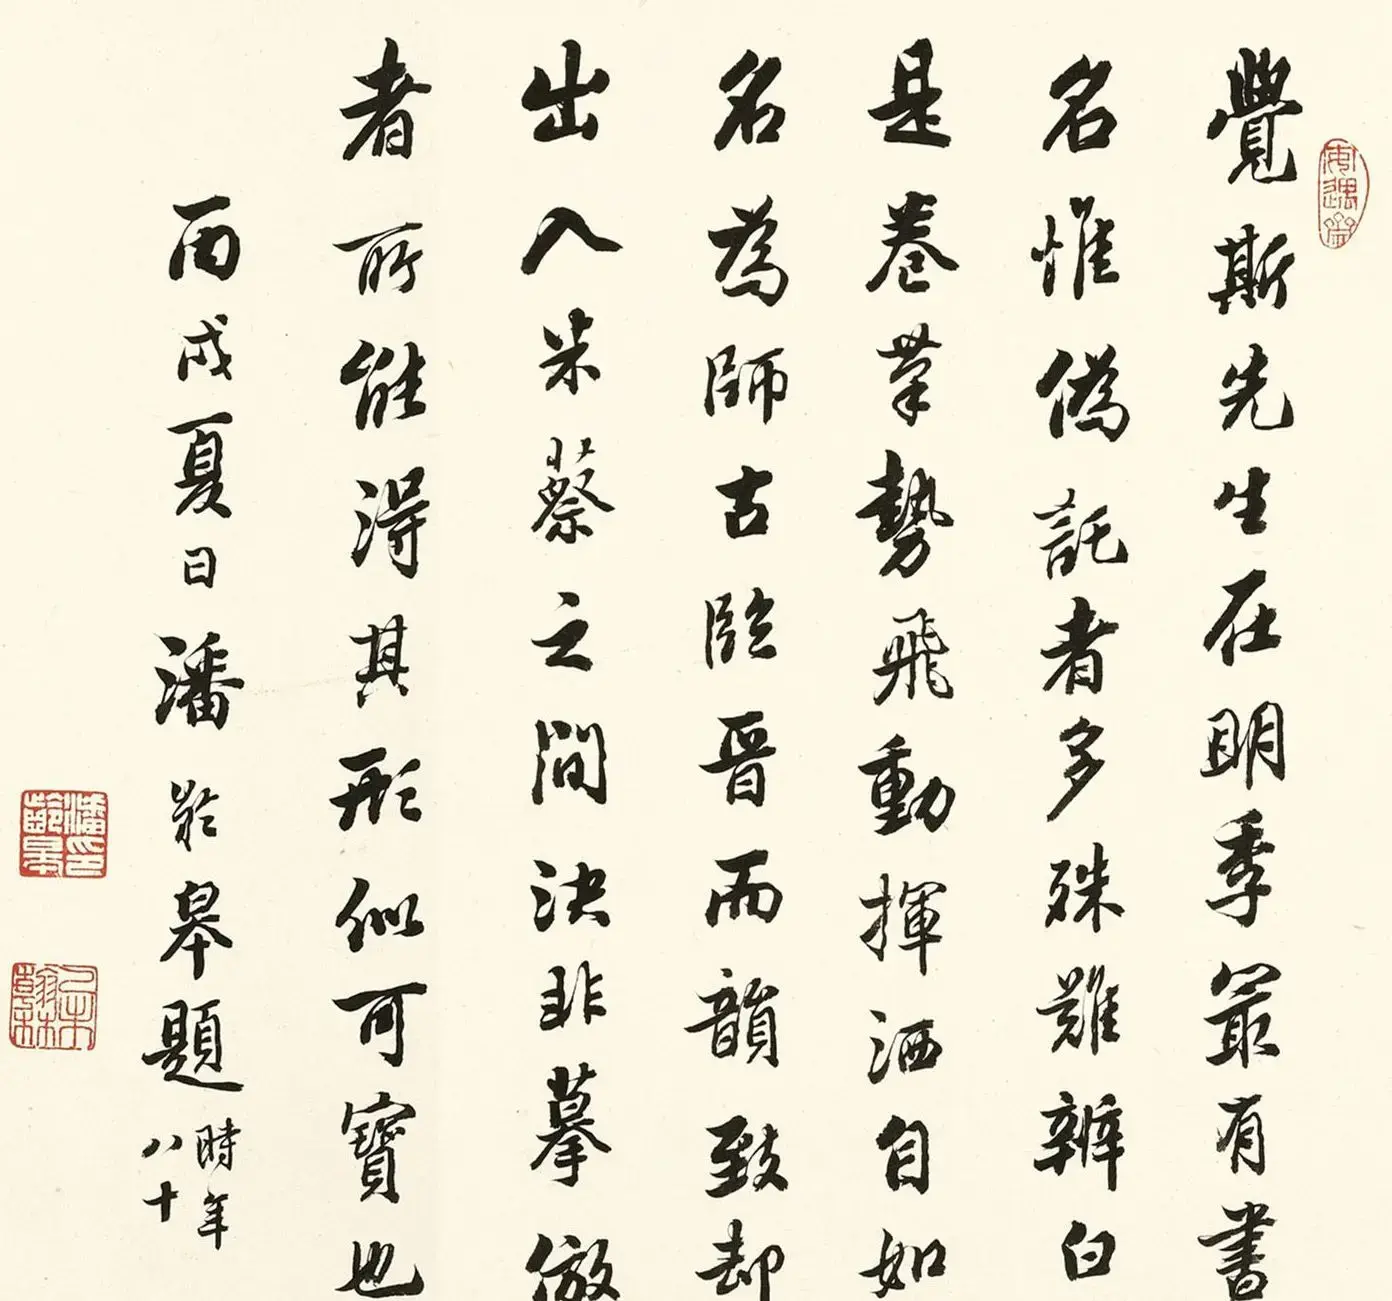 覺斯先生在明季冣有書
名惟偽託者多殊難辨白
是卷筆勢飛動揮洒自如
名為師古臨晉而韻致却
出入米蔡之間決非摹倣
者所能得其形似可寶也
丙戌夏日潘齡皋題
時年
八十
潘印
齡皋